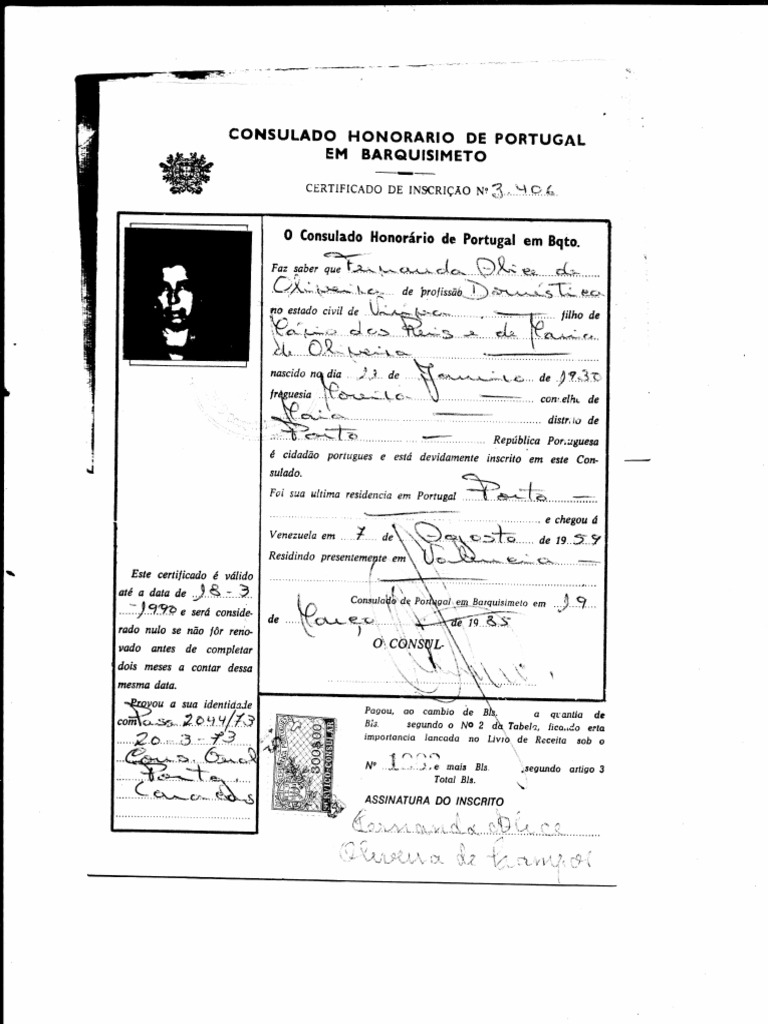 CONSULADO HONORARIO DE PORTUGAL
EM BARQUISIMETO
CERTIFICADO DE INSCRIÇÃO Nº 3.406
O Consulado Honorário de Portugal em Bqto.
Faz saber que Fernanda Alice de
Oliveira de profissão Doméstica
no estado civil de filho de
Mário dos Reis e de Maria
de Oliveira
nascido no dia de Janeiro de 1930
freguesia Moreira concelho de
Maia distrito de
Porto República Portuguesa
é cidadão portugues e está devidamente inscrito em este Con-
sulado.
Foi sua ultima residencia em Portugal Porto
e chegou á
Venezuela em 7 de Agosto de 1959
Residindo presentemente em Valencia
Consulado de Portugal em Barquisimeto em 19
de Março de 1985
O CONSUL-
Este certificado é válido
até a data de 18-3
-1990 e será conside-
rado nulo se não fôr reno-
vado antes de completar
dois meses a contar dessa
mesma data.
Provou a sua identidade
com Pass 2044/73
20-3-73
Cons. Geral
Caracas
300$00
SERVIÇO CONSULAR
Pagou, ao cambio de Bls. a quantia de
Bls. segundo o Nº 2 da Tabela, ficando esta
importancia lancada no Livro de Receita sob o
Nº e mais Bls. segundo artigo 3
Total Bls.
ASSINATURA DO INSCRITO
Fernanda Alice
Oliveira de Campos